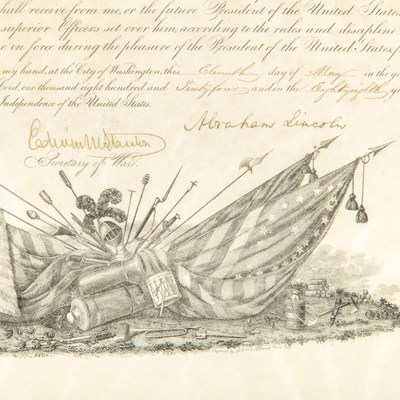 shall receive from me, or the future President of the United States
superior Officers set over him, according to the rules and discipline
in force during the pleasure of the President of the United States, f
my hand, at the City of Washington, this Eleventh day of May in the ye
Lord, one thousand eight hundred and Sixty four and in the Eighty eighth y
Independence of the United States.
Abraham Lincoln
Edwin M Stanton
Secretary of War.